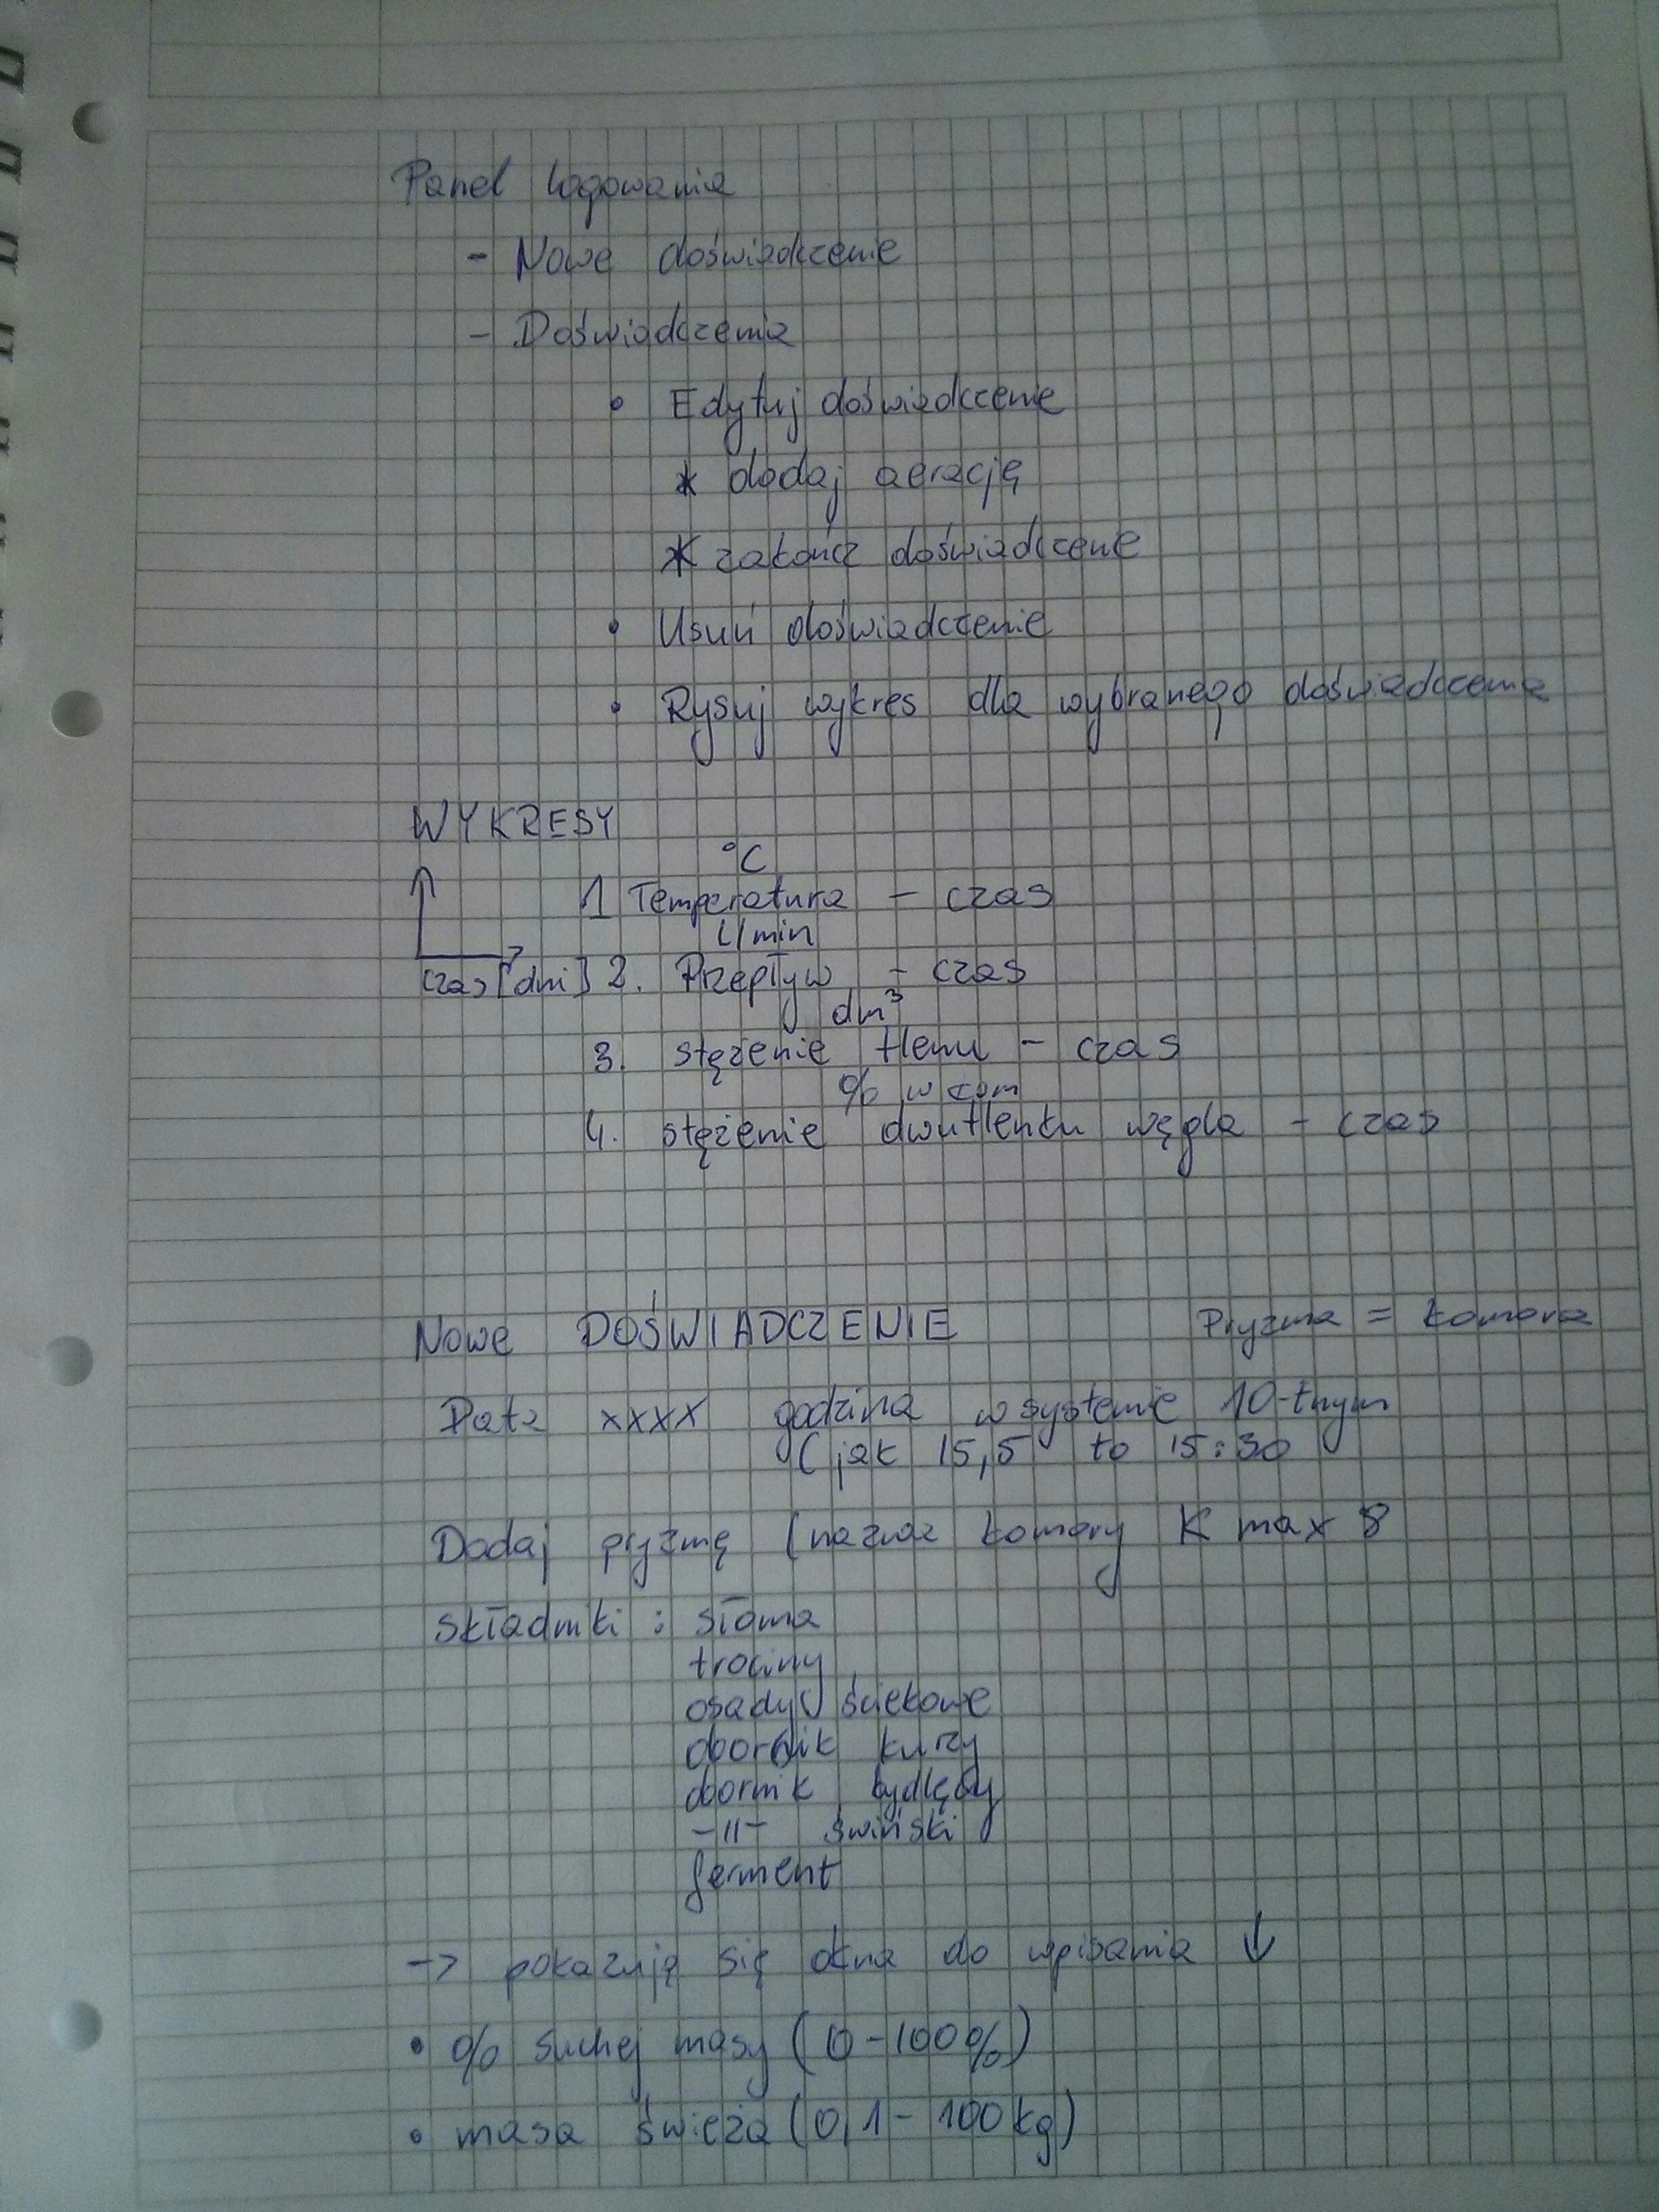 Panel logowania
- Nowe doświadczenie
- Doświadczenia
• Edytuj doświadczenie
* dodaj aerację
* zakończ doświadczenie
• Usuń doświadczenie
• Rysuj wykres dla wybranego doświadczenia
WYKRESY
°C
1 Temperatura - czas
L/min
czas [dni] 2. Przepływ - czas
dm³
3. stężenie tlenu - czas
% w
4. stężenie dwutlenku węgla - czas
Nowe DOŚWIADCZENIE Pryzma = komora
Data xxxx godzina w systemie 10-tnym
(jak 15,5 to 15:30
Dodaj pryzmę (nazwa komory K max 8
składniki : słoma
trociny
osady ściekowe
obornik kurzy
obornik bydlęcy
-||- świński
ferment
-> pokazują się okna do wpisania ↓
• % suchej masy (0-100%)
• masa świeża (0,1- 100 kg)